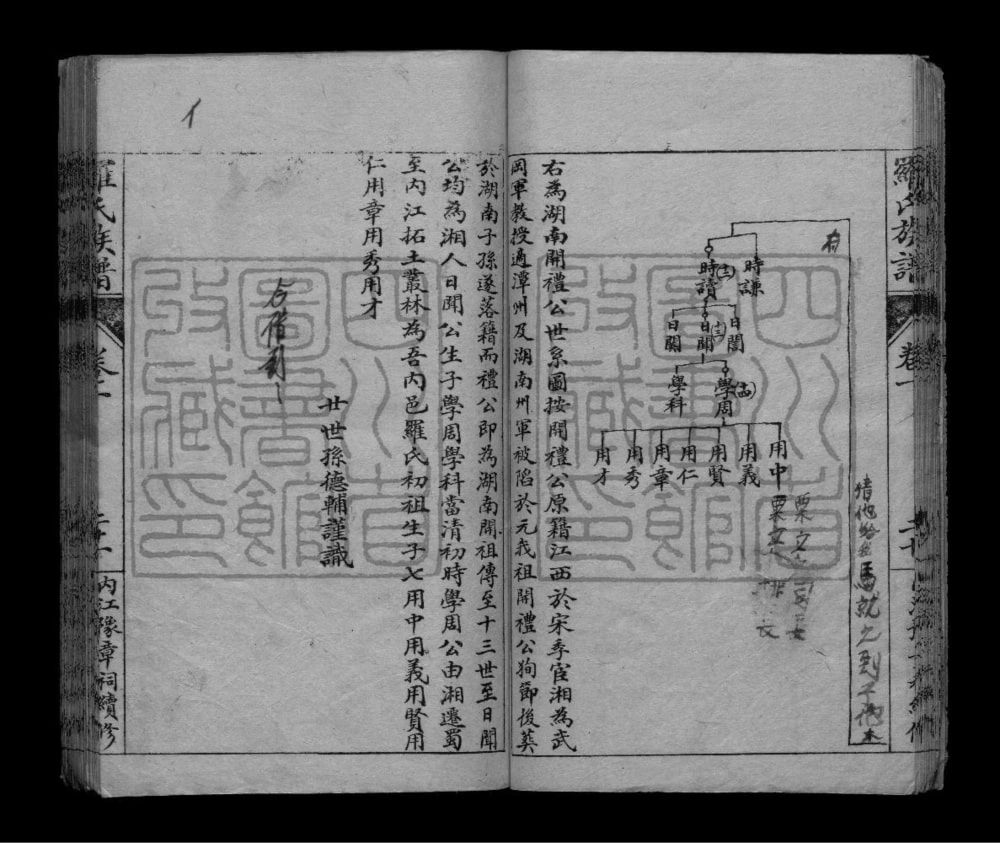 羅氏族譜
卷一
時謙
時讀
十二
日閶
日聞
十三
日闗
學周
十四
學科
用中
用義
用賢
用仁
用章
用秀
用才
右為湖南開禮公世系圖按開禮公原籍江西於宋季宦湘為武
岡軍教授適潭州及湖南州軍被陷於元我祖開禮公殉節後葬
於湖南子孫遂落籍而禮公即為湖南開祖傳至十三世至日聞
公均為湘人日聞公生子學周學科當清初時學周公由湘遷蜀
至內江拓土叢林為吾內邑羅氏初祖生子七用中用義用賢用
仁用章用秀用才
廿世孫德輔謹識
羅氏族譜
卷一
二十一
內江豫章祠續修
四川省
圖書館
收藏印
四川省
圖書館
收藏印